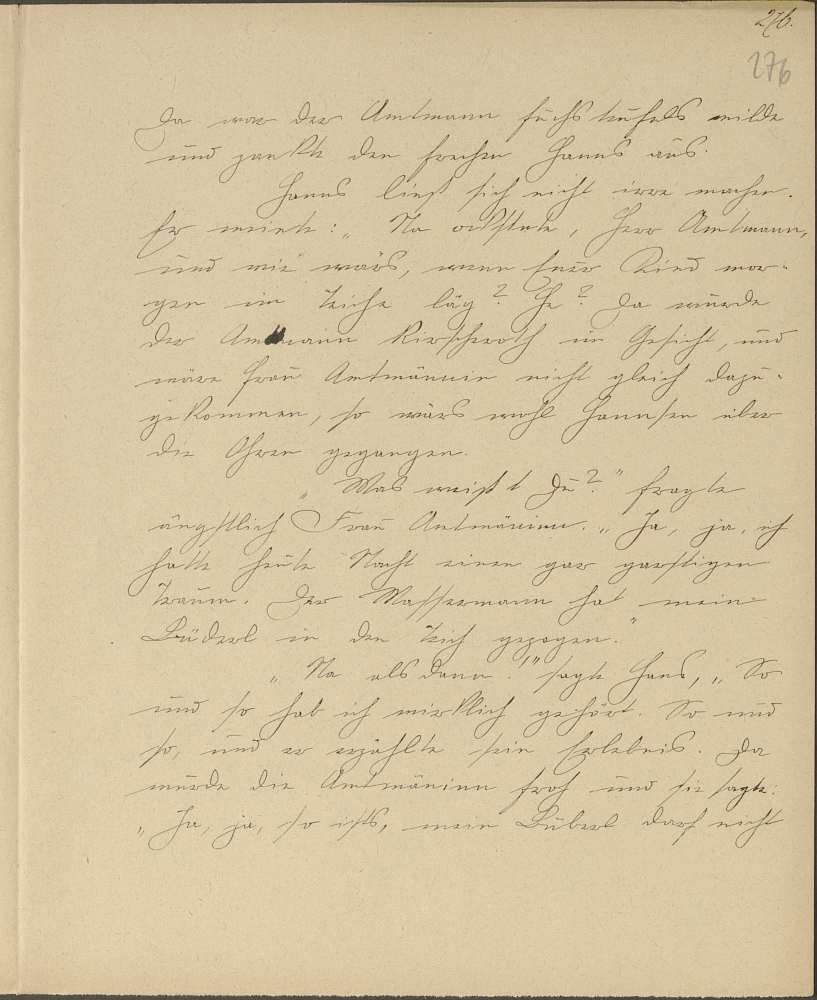 276.
276
Da war der Amtmann fuchsteufels wilde
und zankte den frechen Hanns aus.
Hanns ließ sich nicht irre machen.
Er meinte: „ Na siehstens, Herr Amtmann,
und wie wärs, wenn Euer Kind mor-
gen im Teiche läg? He? Da wurde
der Amtmann kirschroth im Gesicht, und
wäre Frau Amtmännin nicht gleich dazu-
gekommen, so wärs wohl Hannsen über
die Ohren gegangen.
„ Was weißt Du?" fragte
ängstlich Frau Amtmännin. „ Ja, ja, ich
hatte heute Nacht einen gar garstigen
Traum. Der Wassermann hat mein
Büberl in den Teich gezogen."
„ Na alsdann!" sagte Hans, „ So
und so hab ich wirklich gehört. So und
so, und er erzählte sein Erlebnis. Da
wurde die Amtmännin froh und sie sagte:
„ Ja, ja, so ists, mein Büberl darf nicht